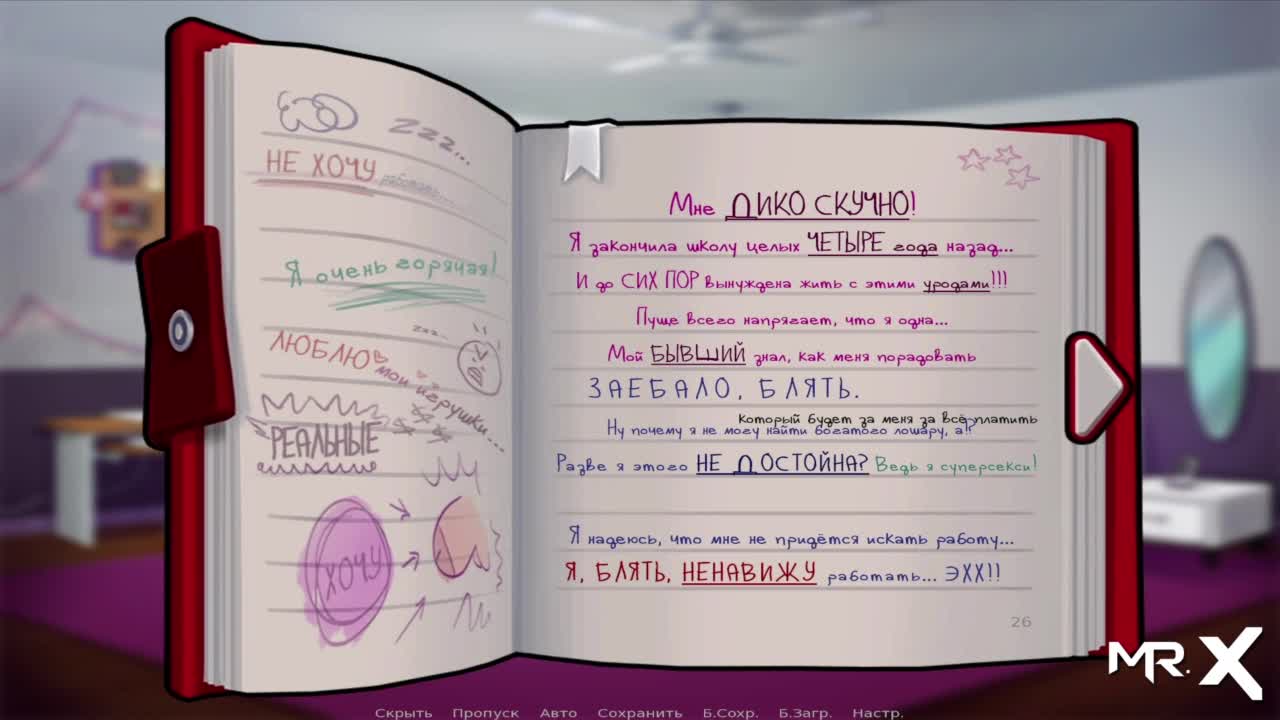 zzz...
НЕ ХОЧУ работать...
Я очень горячая!
zzz...
ЛЮБЛЮ мои игрушки...
РЕАЛЬНЫЕ
ХОЧУ
Мне ДИКО СКУЧНО!
Я закончила школу целых ЧЕТЫРЕ года назад...
И до СИХ ПОР вынуждена жить с этими уродами!!!
Пуще всего напрягает, что я одна...
Мой БЫВШИЙ знал, как меня порадовать
ЗАЕБАЛО, БЛЯТЬ.
который будет за меня за всё платить
Ну почему я не могу найти богатого лошару, а?!
Разве я этого НЕ ДОСТОЙНА? Ведь я суперсекси!
Я надеюсь, что мне не придётся искать работу...
Я, БЛЯТЬ, НЕНАВИЖУ работать... ЭХХ!!
26
MR. X
Скрыть Пропуск Авто Сохранить Б.Сохр. Б.Загр. Настр.